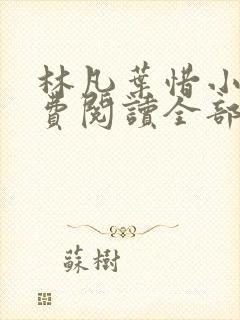 林凡葉惜小
費閱讀全部
蘇樹